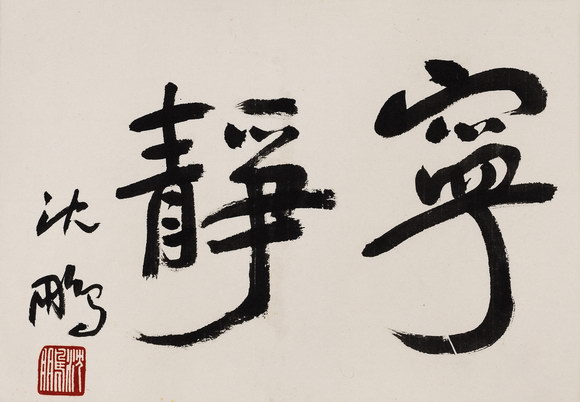 寧靜
沈鵬
沈鵬